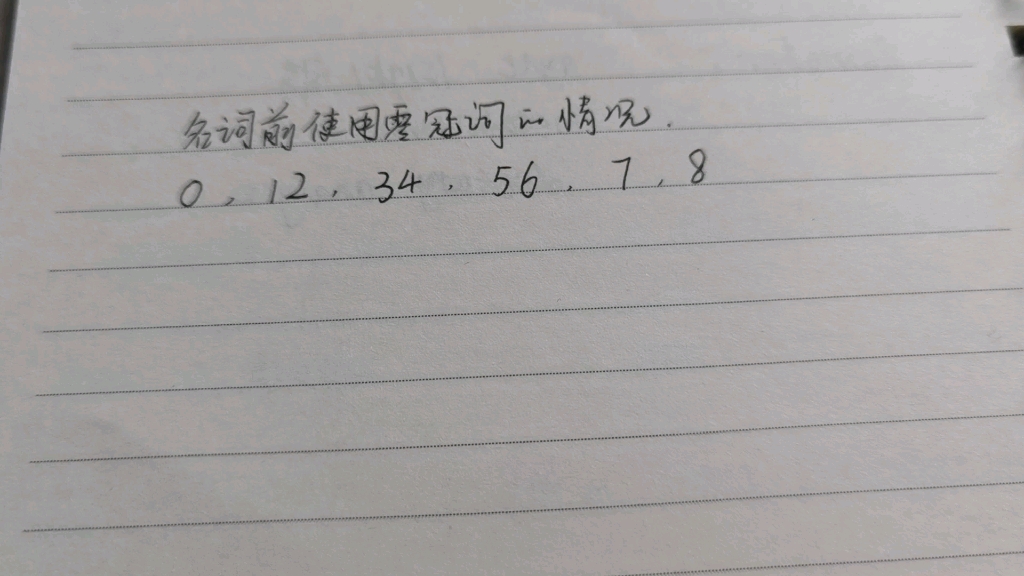 名词前使用零冠词的情况.
0, 12, 34, 56, 7, 8